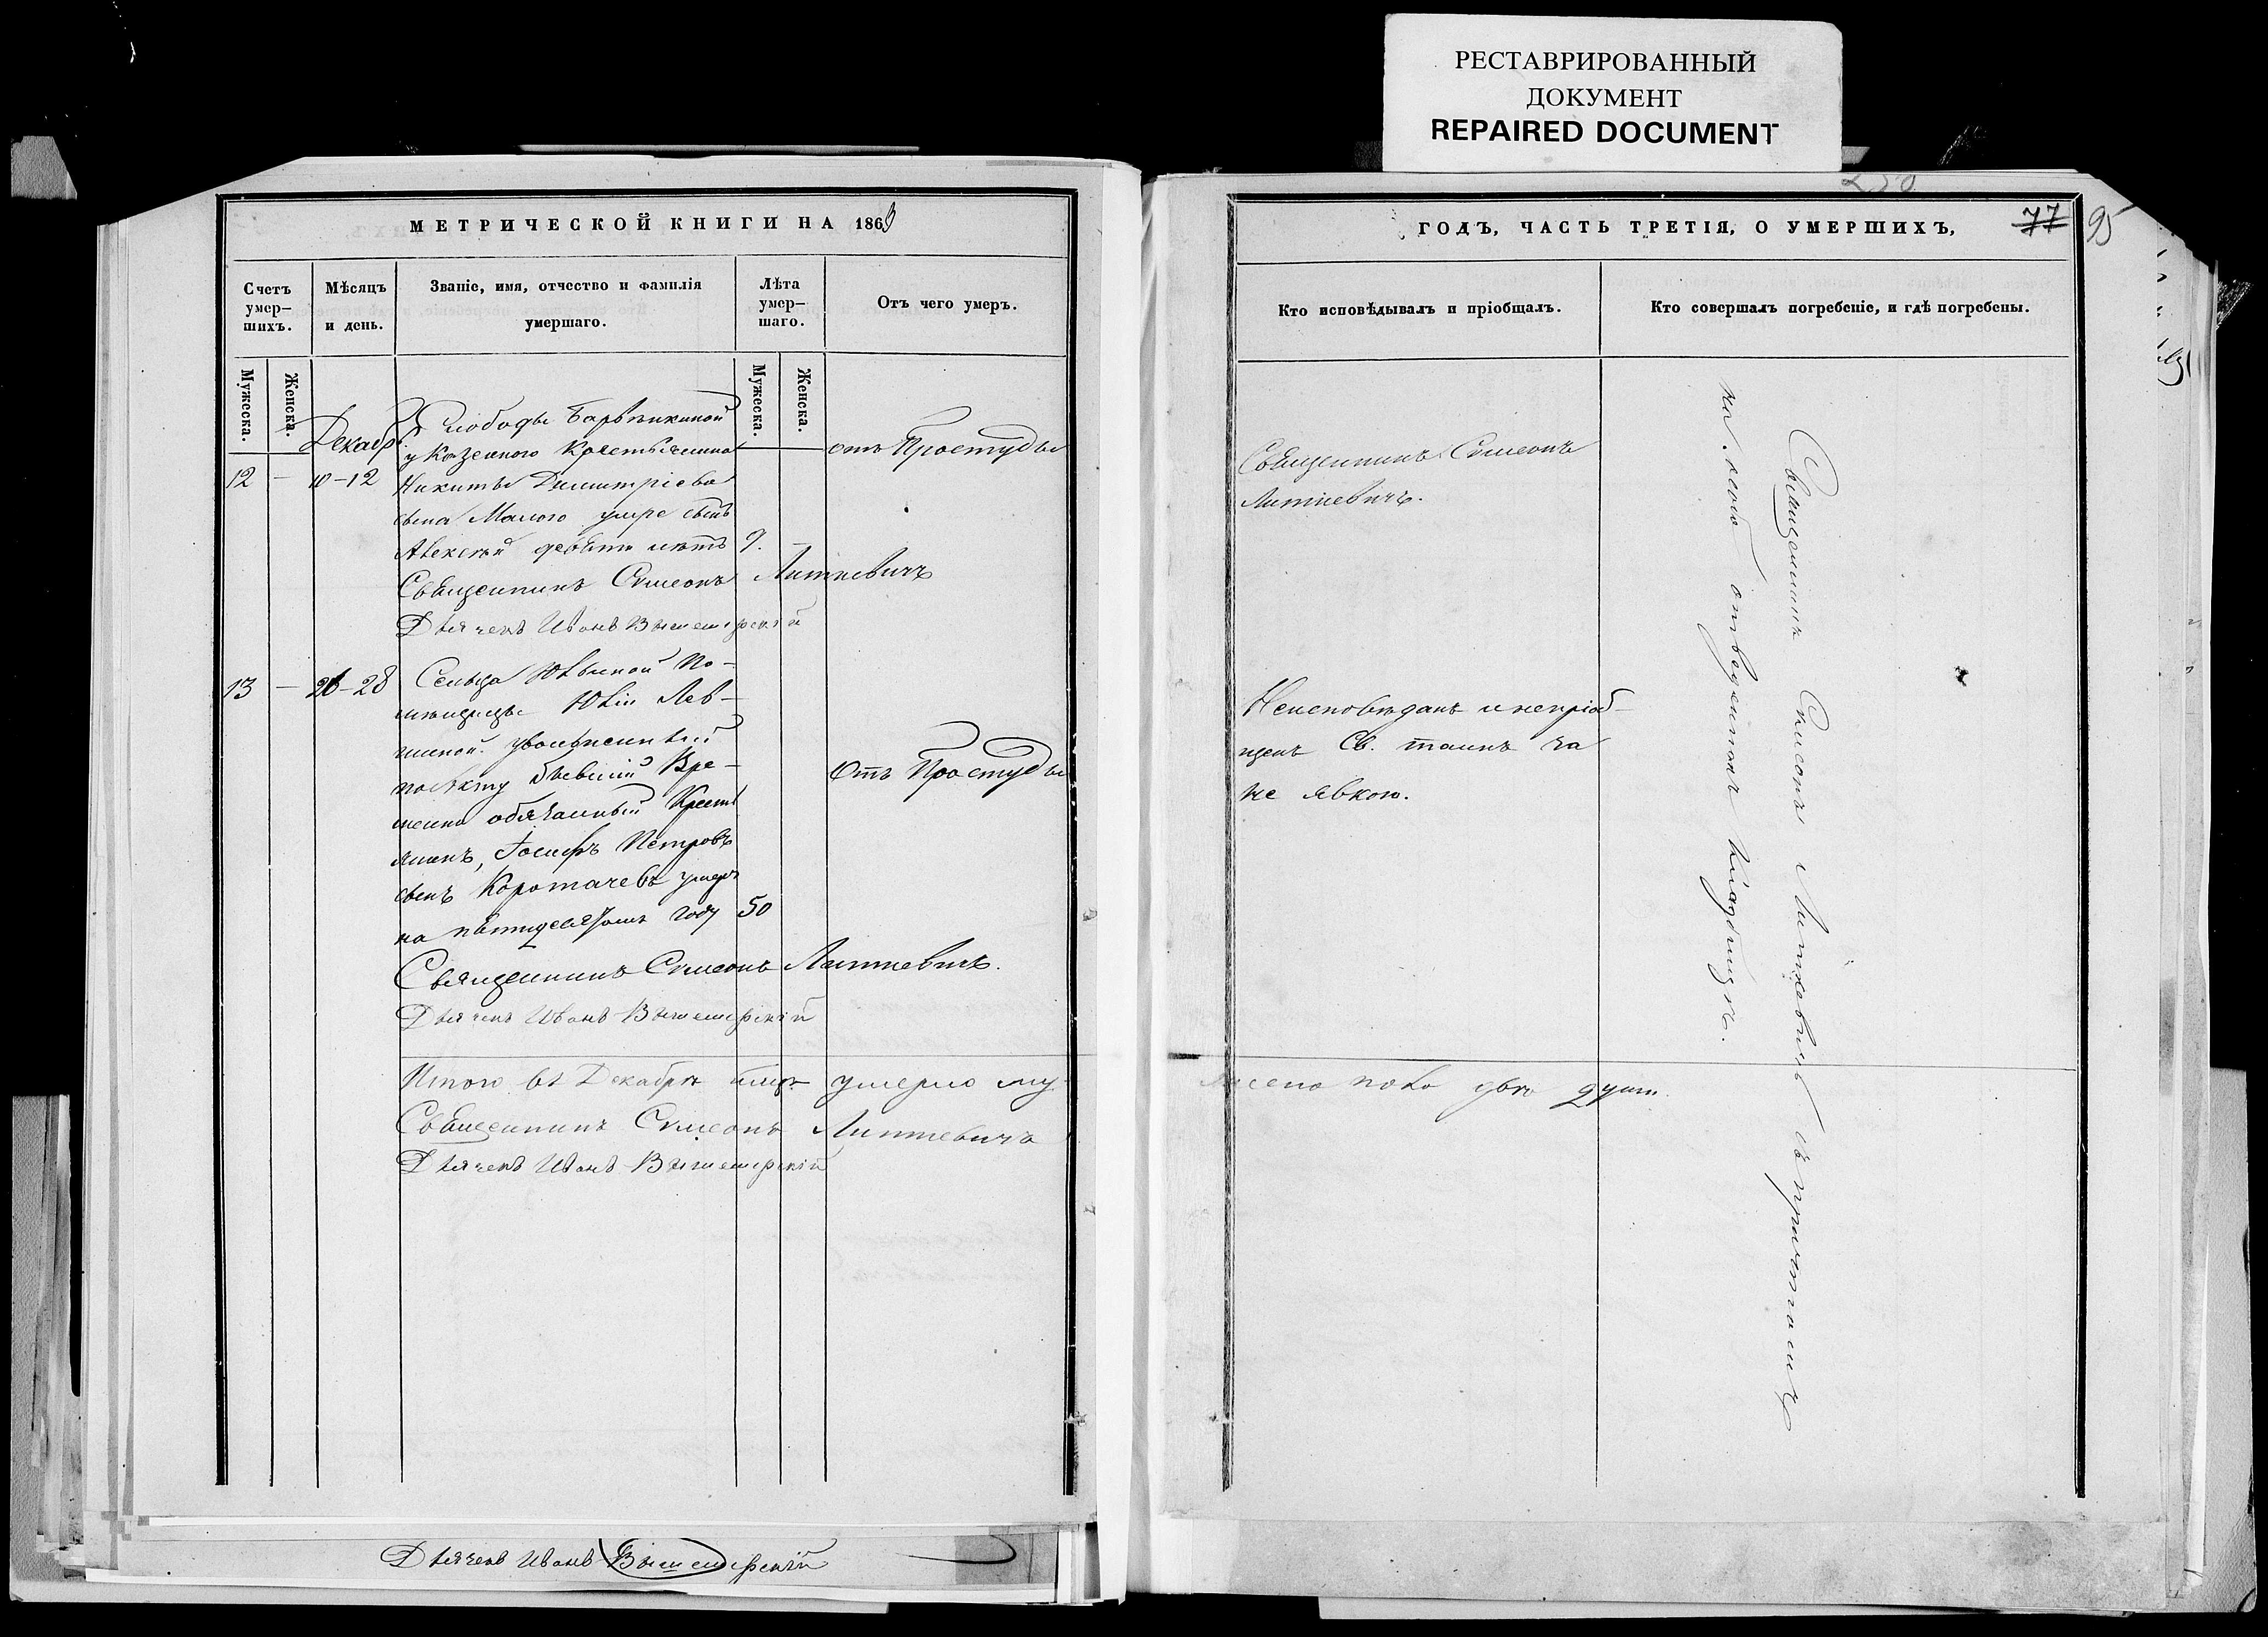 РЕСТАВРИРОВАННЫЙ
ДОКУМЕНТ
REPAIRED DOCUMENT
МЕТРИЧЕСКОЙ КНИГИ НА 1863
Счетъ умер-
шихъ.
Мѣсяцъ
и день.
Званіе, имя, отчество и фамилія
умершаго.
Лѣта
умер-
шаго.
Отъ чего умеръ.
Мужеска.
Женска.
Мужеска.
Женска.
Декабр.
Слободы Барвѣнкиной
у Казеннаго Крестьянина
отъ Простуды
12 - 10-12 Никиты Димитріева
сына Малого умре сынъ
Алексѣй девяти лѣтъ 9. -
Священникъ Симеонъ Литкевичъ
Дьячекъ Иванъ
13 - 26-28 Сельца Юліиной По-
мѣщицы Юліи Лев-
шиной уволенный
по Акту бывшій Вре-
Отъ Простуды
менно обязанный Крестъ
янинъ, Іосифъ Петровъ
сынъ Коротачевъ умеръ
на пятидесятомъ году 50
Священникъ Симеонъ Литкевичъ.
Дьячекъ Иванъ
Итого въ Декабрѣ умерло му-
Священникъ Симеонъ Литкевичъ
Дьячекъ Иванъ
Дьячекъ Иванъ
77 95
ГОДЪ, ЧАСТЬ ТРЕТІЯ, О УМЕРШИХЪ,
Кто исповѣдывалъ и пріобщалъ.
Кто совершалъ погребеніе, и гдѣ погребены.
Священникъ Симеонъ
Литкевичъ.
Неисповѣданъ и непріоб-
щенъ Св. таинъ за
не явкою.
жеска пола два 2
Священникъ Симеонъ Литкевичъ съ причтомъ
отведенномъ кладбищѣ.